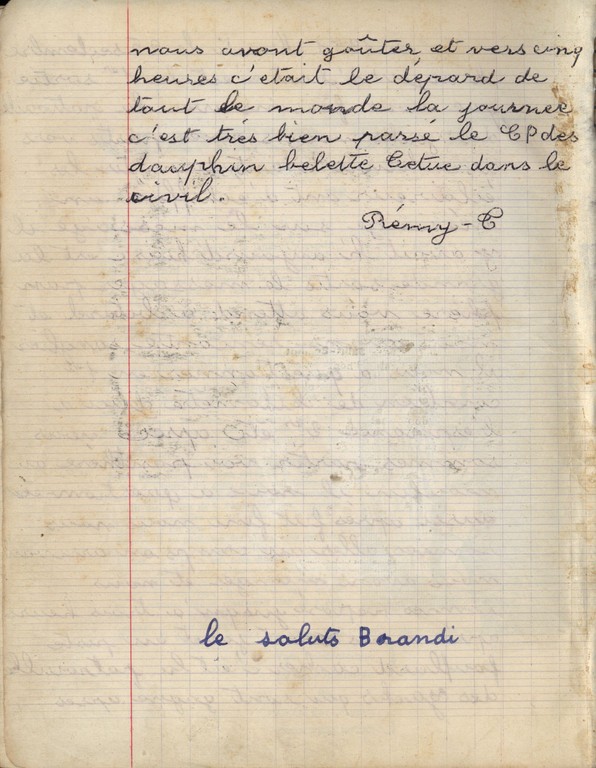 nous avont goûter et vers cinq
heures c'était le dépard de
tout le monde la journee
c'est trés bien passé le CP des
dauphin belette Cetue dans le
civil.
Rémy-C
le saluts Borandi